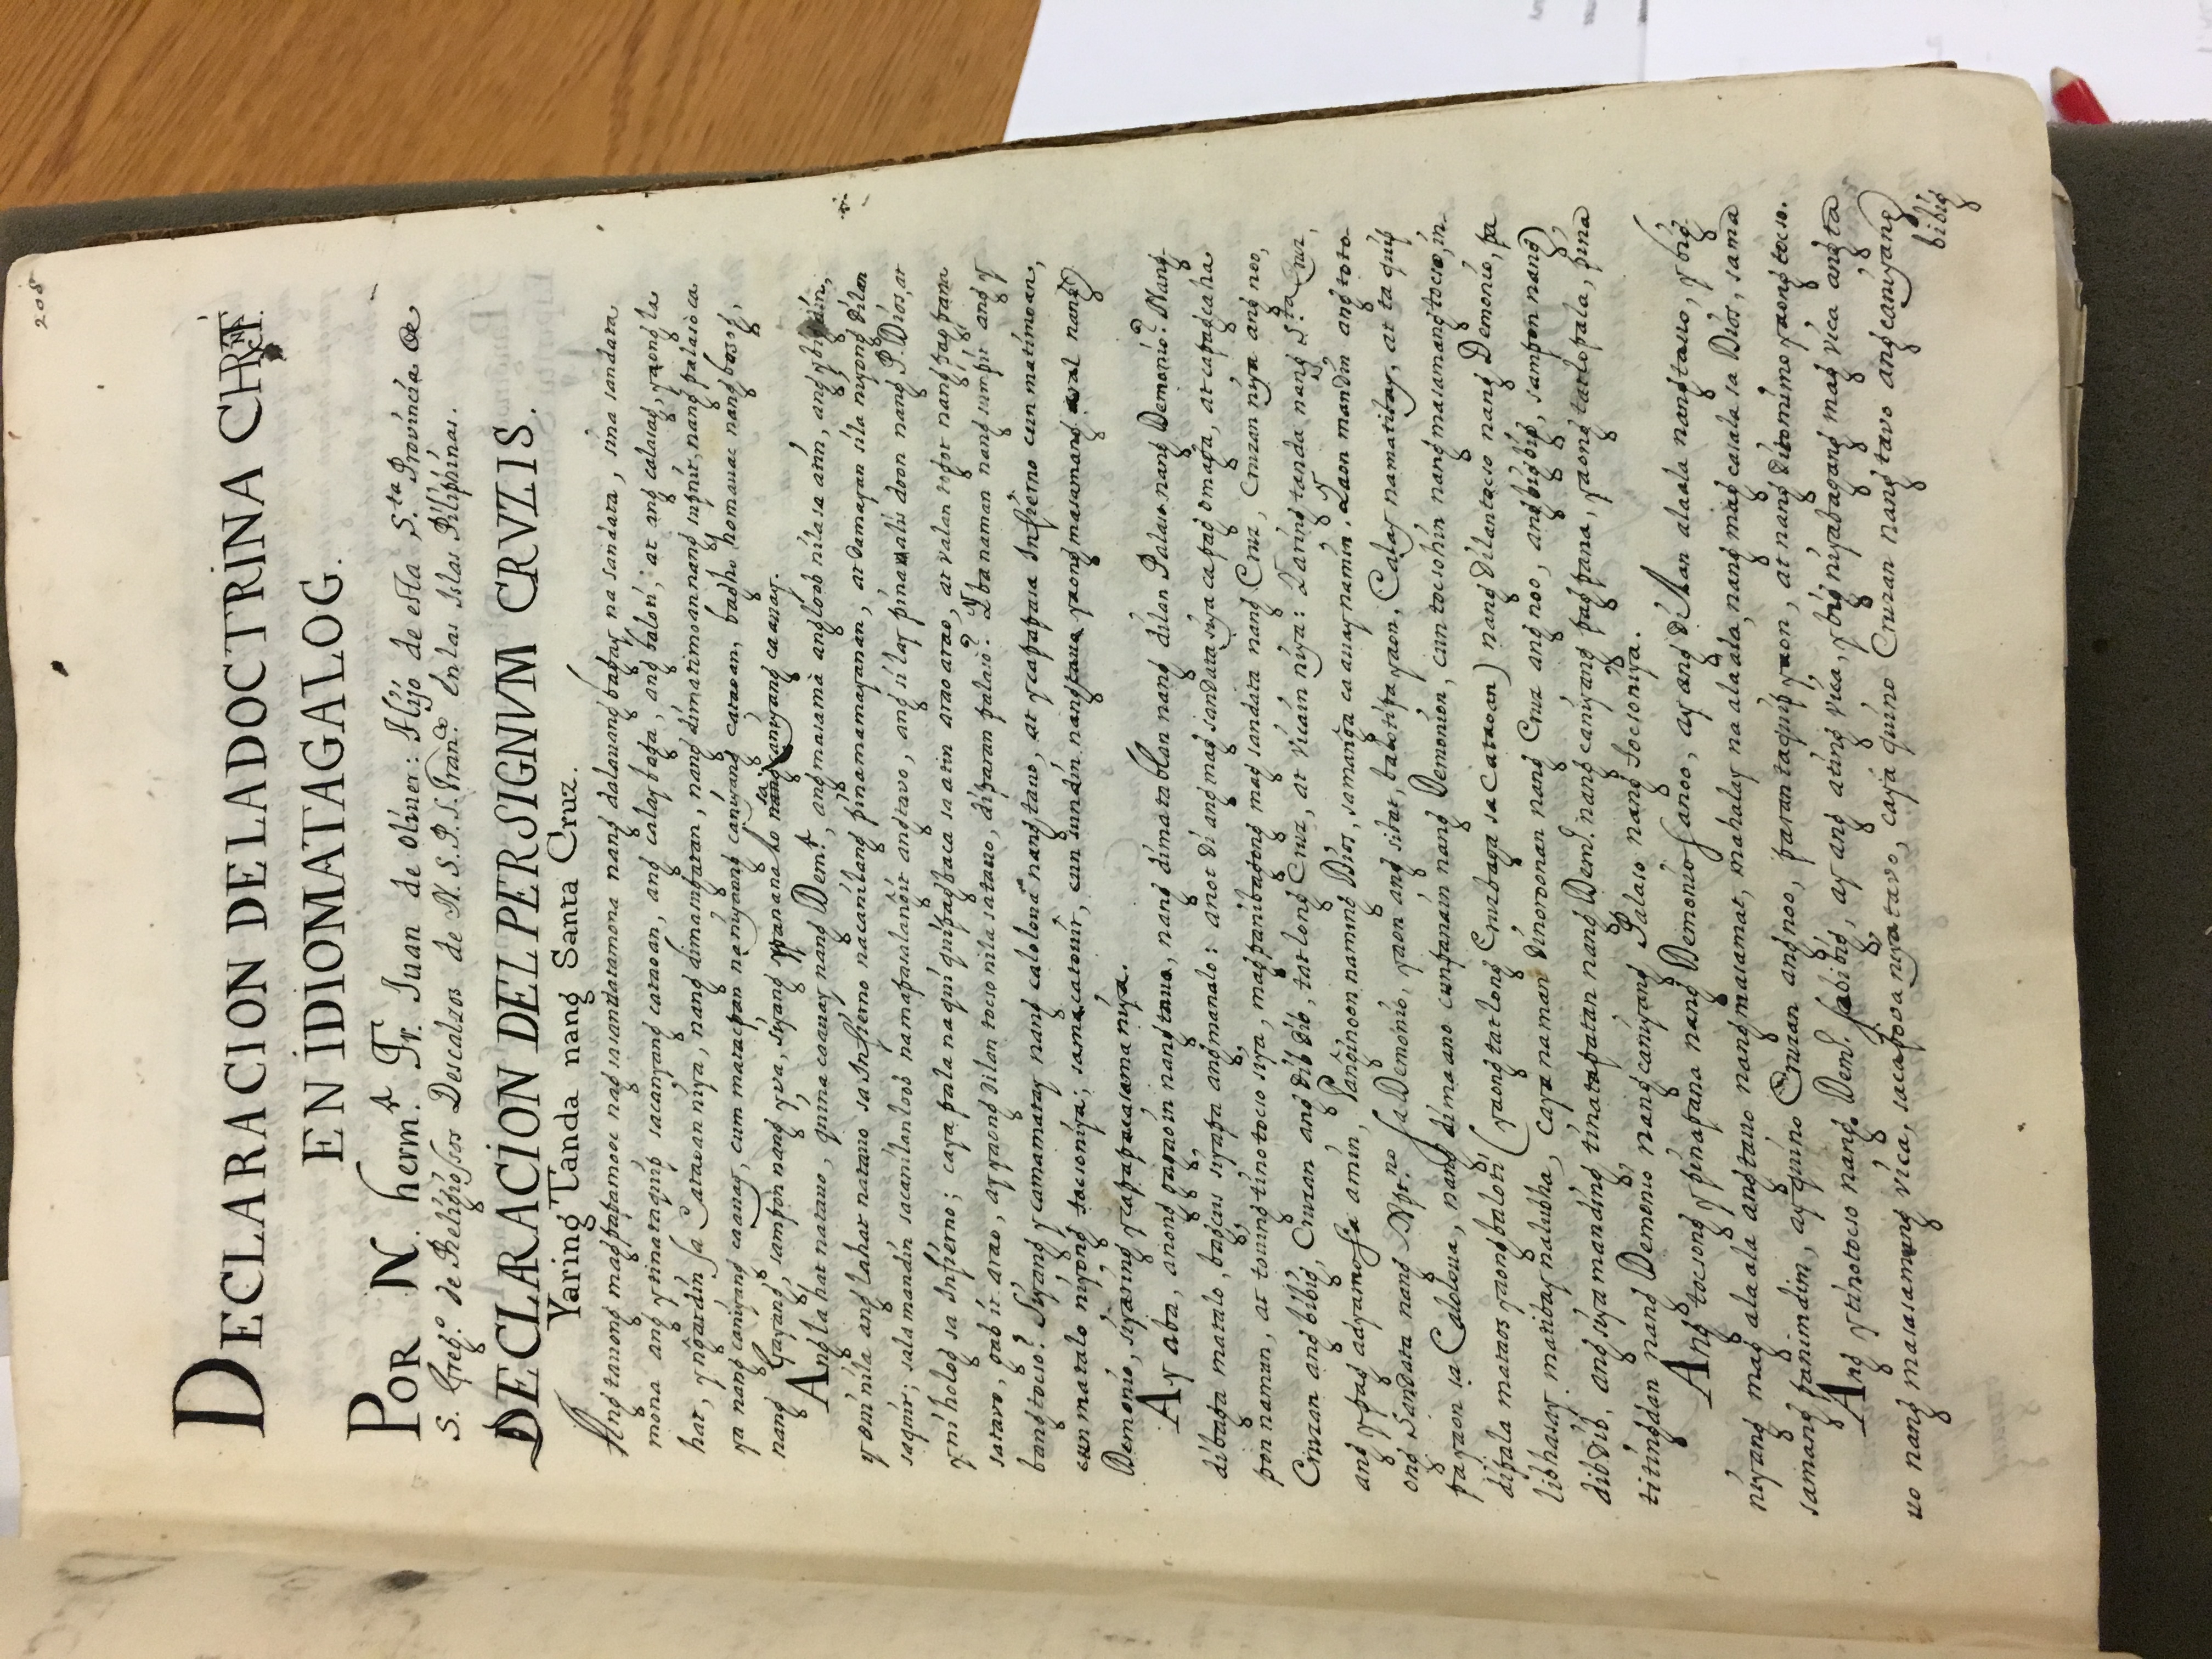 208
DECLARACION DE LA DOCTRINA CHRT.
EN IDIOMA TAGALOG.
POR N. herm.º Fr. Juan de oliuer: Hijo de esta S.ta Provincia de
S. Greg.º de Religiossos Descalzos de N. S. P. S. Fran.co En las Islas Piliphinas.
DECLARACION DEL PER SIGNVM CRVZIS.
Yaring Tanda nang Santa Cruz.
Ang tauong magpapamooc nag sasandatamona nang dalauang bagay na sandata, sina sandata
mona ang ytinataquip sacanyang cataoan, ang calaybaga, ang baloti, at ang calasag, yaong la
hat, yng̃atdin sa Cataoan niya, nang dimasugatan, nang dimatimoan nang supnit, nang palasò ca
ya nang caniyang caauay, cum matacpan na niyaong caniyang cataoan, bagho homauac nang bosog,
nang Gayang, sampon nang yua, siyang ypanana lo sa caniyang caauay.
Ang lahat natauo, quina caauay nang Dem.º, ang masamà ang loob nila sa atin, ang ybig din,
y oui nila ang lahat natauo sa Infierno nacanilang pinamamayanan, at damayan sila niyong dilan
saquit; sala mandin sacanilan loob na mapasalang̃it angtavo, ang silay pinaalis doon nang P. Dios, at
yni holog sa Infierno; caya pala naqui quipagbaca sa atin arao arao, at valan togot nang pag pana
satavo, gab it arao, ay yaong dilan tocso nila satauo, diparan palasò? Yba naman nang sumpit ang y
bang tocso? Siyang ycamamatay nang calolouà nang tauo, at ycapapasa Infierno cun matimoan,
cun matalo niyong tocsoniya; samacatouir, cun sundin nangtauo yaong masamang aral nang
Demonio, siyaring ycapapacasama niya.
Ay aba, anong gagaoin nang tauo, nang dimatablan nang dilan Palaso nang Demonio? Nang-
dibaga matalo, bagcus siyapa angmanalo: anot di ang mag sandata siya capag omaga, at capagcaha
pon naman, at touing tinotocso siya, magpanibagong mag sandata nang Cruz, Cruzan niya ang noo,
Cruzan ang bibig, Cruzan ang dib dib, tatlong Cruz, at vicain niya: Yaring tanda nang S.ta Cruz,
ang ypag adyamo sa amin, Pang̃inoon naming Dios, samang̃a ca auay namin. Yaon mandin ang toto-
ong Sandata nang Xpt.no sa Demonio, yaon ang sibat, balotipa yaon, Calay namatibay, at ta quip
pa yaon sa Caloloua, nang dimaano cunpanain nang Demonion, cun tocsohin nang masamang tocso, in-
dipala mataos yaong baloti (yaong tatlong Cruz baga sa Cataoan) nang dilantocso nang Demonio, pa
libhasay matibay nalubha, caya naman dinoroonan nang Cruz ang noo, ang bigbig, sampon nang
dibdib, ang siya manding tinatapatan nang Dem.º nang caniyang pag pana, yaong tatlo pala, pina
titingdan nang Demonio nang caniyang Palaso nang tocsoniya.
Ang tocsong ypinapana nang Demonio sanoo, ay ang dilan alaala nang tauo, ybig
niyang mag alaala ang tauo nang masamat, mahalay na alaala, nang mag casala sa Dios, sama
samang panimdim, ay quino Cruzan ang noo, paran taquip yaon, at nang ditomimo yaong tocso.
Ang ytinotocso nang Dem.º sa bibig, ay ang ating vica, ybig niyabagang mag vica ang ta
uo nang masasamang vica, sacapoua niya tavo, caya quino Cruzan nang tavo ang caniyang
bibig